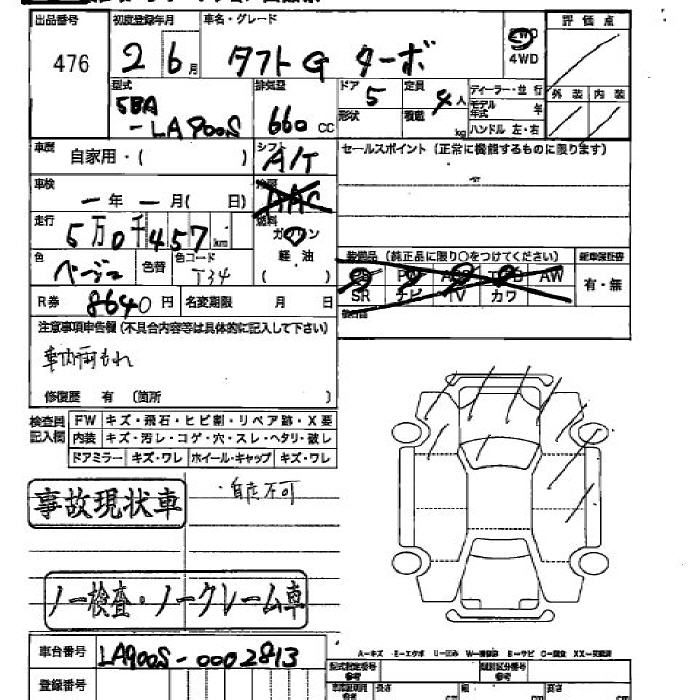 出品番号 初度登録年月 車名・グレード 評価点
476 2 6月 タフトG ターボ 4WD
型式 排気量 ドア 定員 ディーラー・並行 外装 内装
5BA 660 CC 5 4人 モデル年式 年
-LA900S 形状 積載 kg ハンドル 左・右
車歴 自家用・( ) シフト A/T セールスポイント (正常に機能するものに限ります)
車検 ー年ー月( 日) 冷房 AAC
走行 5万0千457km 燃料 ガソリン
色 ベージュ 色替 色コード T34 軽油 ( ) 装備品 (純正品に限り○をつけてください) 新車保証書
AW 有・無
SR ナビ TV カワ
R券 8640円 名変期限 月 日
注意事項申告欄 (不具合内容等は具体的に記入して下さい)
車内雨もれ
修復歴 有 (箇所 )
検査員記入欄 FW キズ・飛石・ヒビ割・リペア跡・X要
内装 キズ・汚レ・コゲ・穴・スレ・ヘタリ・破レ
ドアミラー キズ・ワレ ホイール・キャップ キズ・ワレ
・自走不可
事故現状車
ノー検査・ノークレーム車
車台番号 LA900S-0002813
登録番号
型式指定番号 参考 類別区分番号 参考
長さ cm 幅 cm 高さ cm